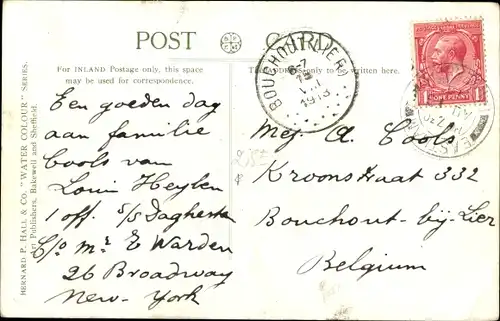 POST CARD
For INLAND Postage only, this space
may be used for correspondence.
The ADDRESS only to be written here.
BERNARD P. HALL & CO. "WATER COLOUR" SERIES.
Art Publishers, Bakewell and Sheffield.
BOUCHOUT (LIER)
6-7
VII
1913
ONE PENNY
1
Een goeden dag
aan familie
Cools van
Louis Heylen
1 off. S/S Daghestan
C/o Mr E Warden
26 Broadway
New-York
Mej. A. Cools
Kroonstraat 332
Bouchout-bij-Lier
Belgium